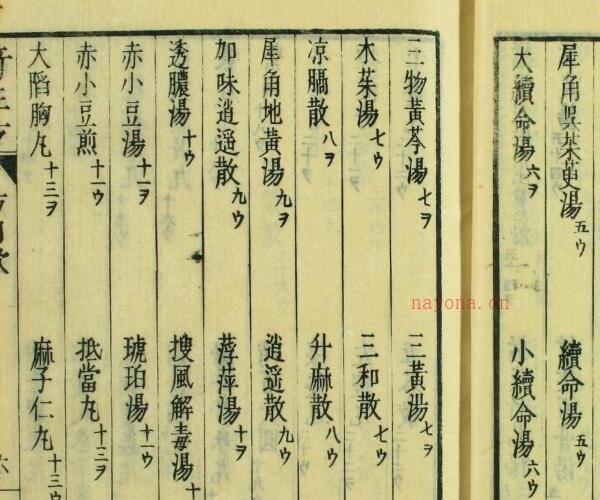 犀角吳茱萸湯 五ウ
續命湯 五ウ
大續命湯 六ヲ
小續命湯 六ウ
三物黃芩湯 七ヲ
三黃湯 七ヲ
木茱湯 七ウ
三和散 七ウ
凉膈散 八ヲ
升麻散 八ウ
犀角地黃湯 九ヲ
逍遥散 九ウ
加味逍遥散 九ウ
浮萍湯 十ヲ
透膿湯 十ウ
搜風解毒湯 十
赤小豆湯 十一ヲ
琥珀湯 十一ウ
赤小豆煎 十一ウ
抵當丸 十三ヲ
大陷胸丸 十三ヲ
麻子仁丸 十三ウ
nayona.cn